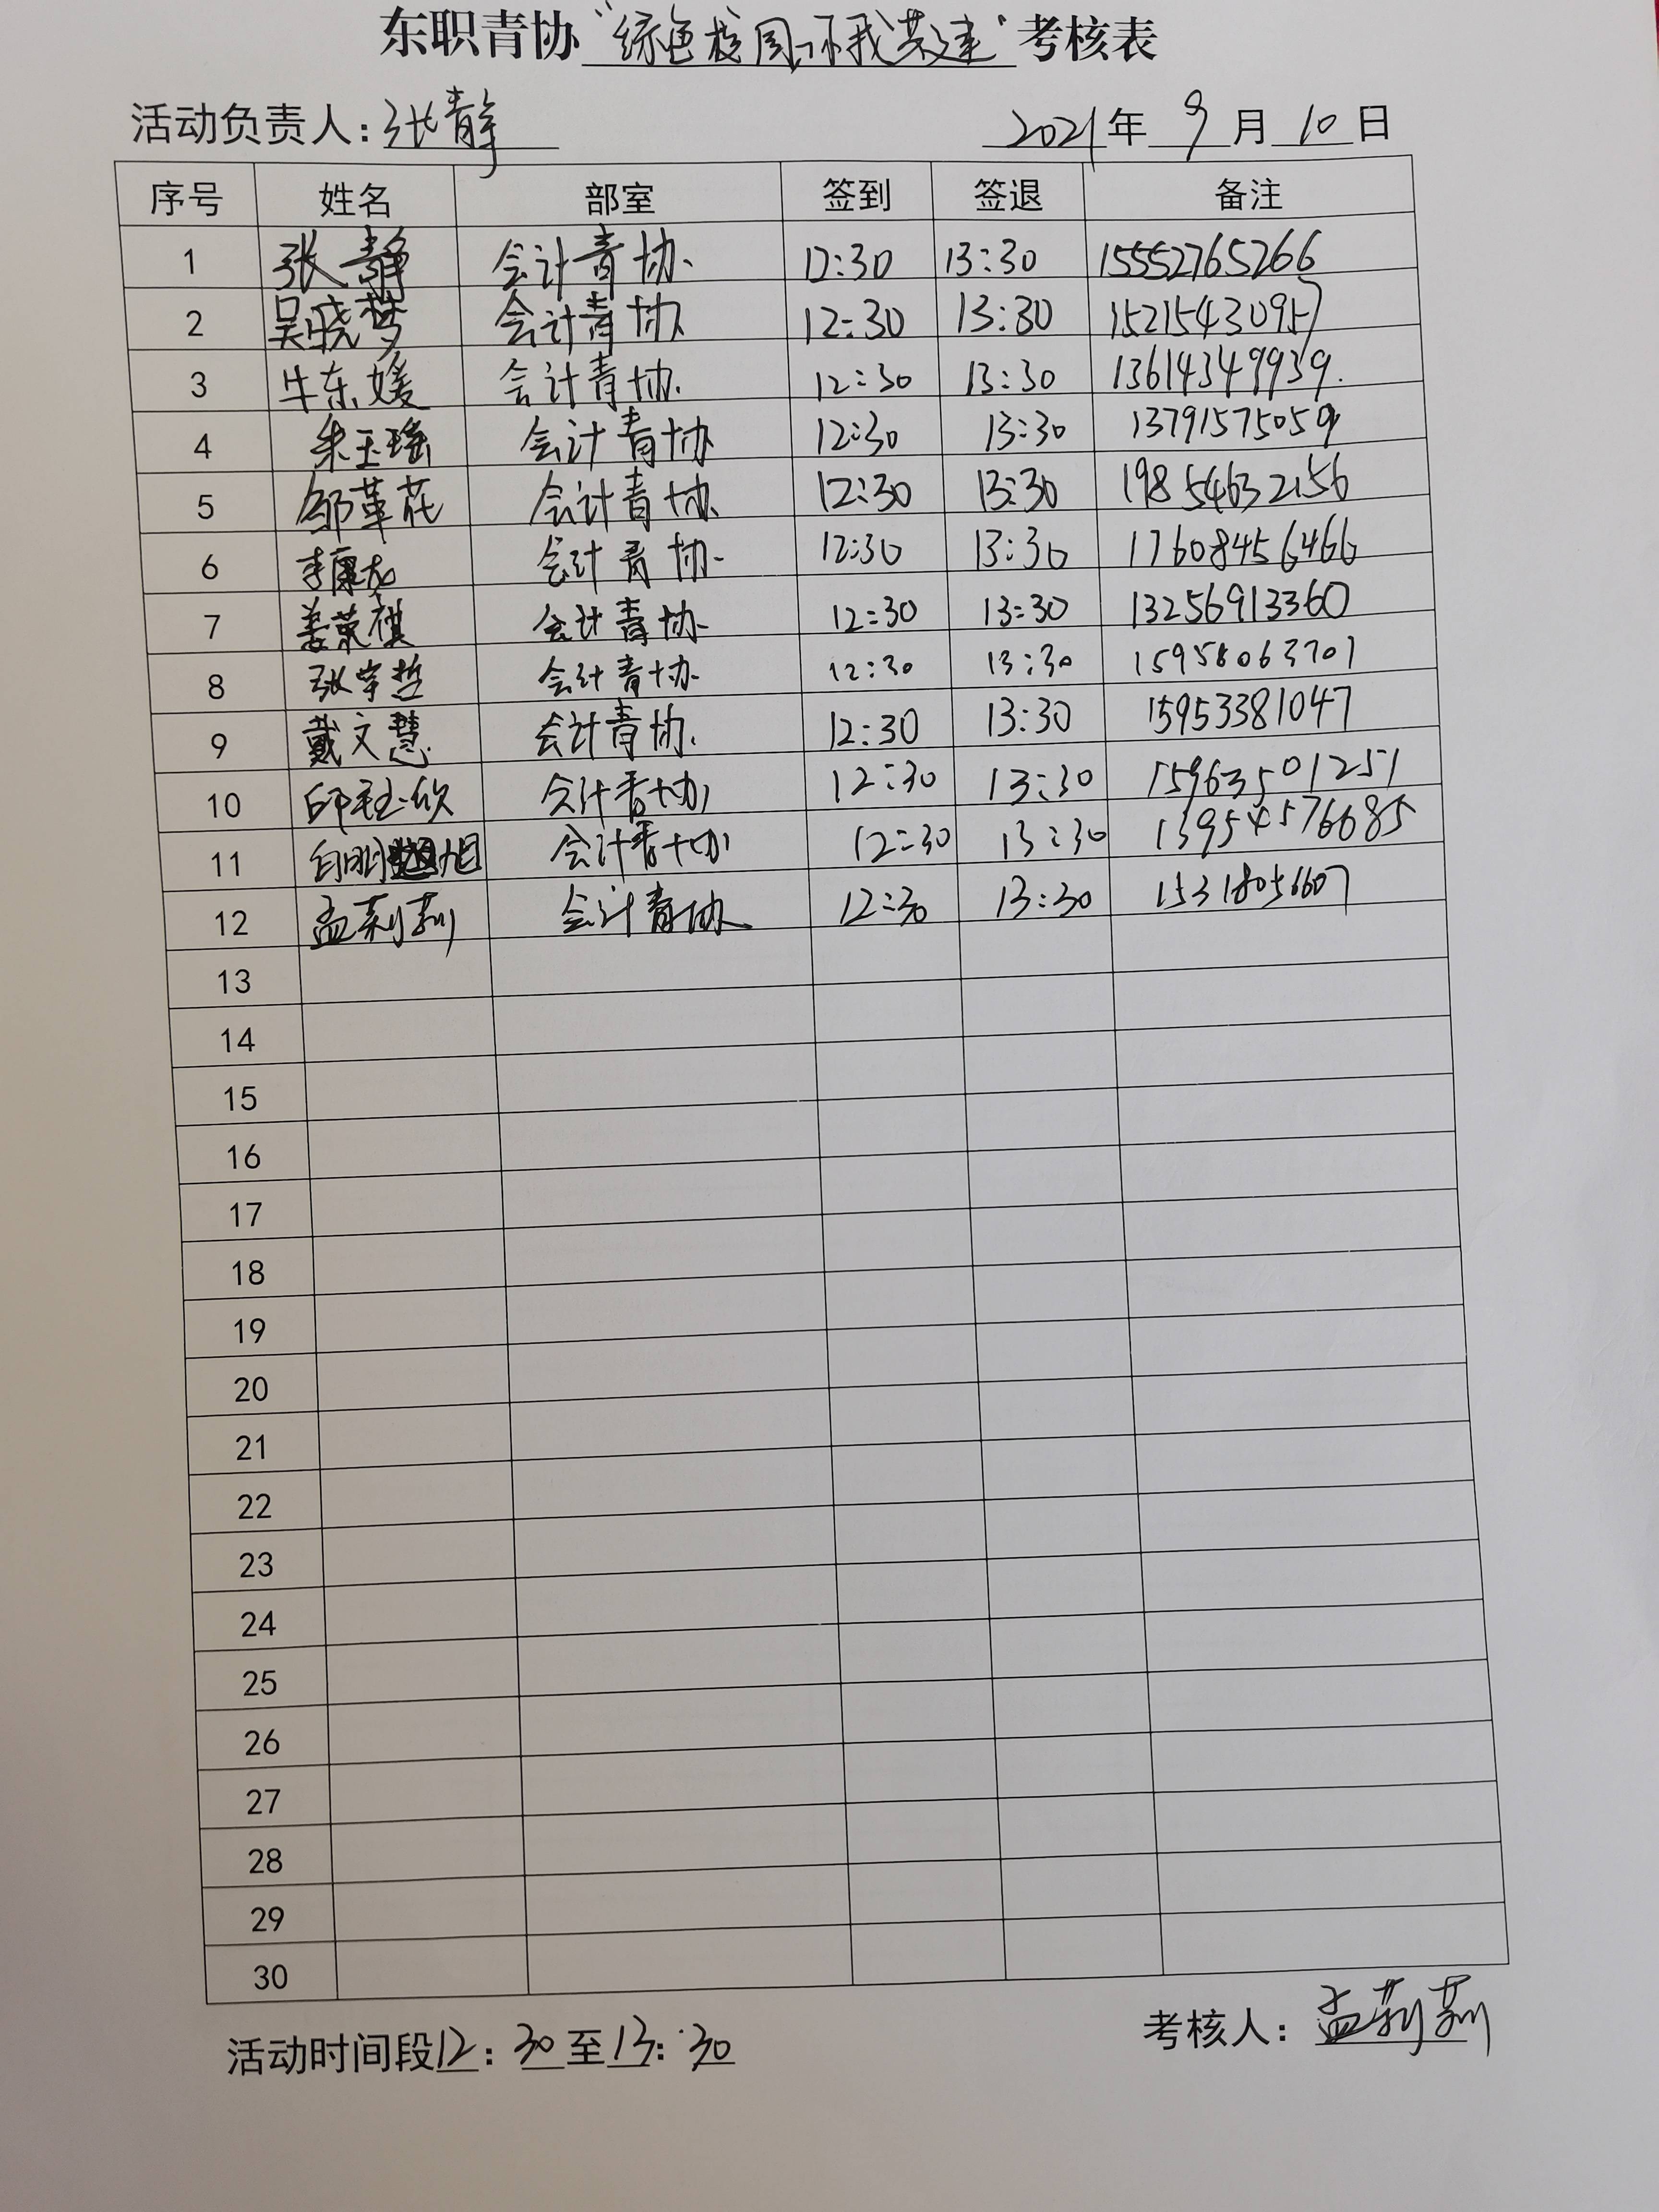 东职青协“绿色校园,你我共建”考核表
活动负责人:张静 2021年 9月 10日
序号 姓名 部室 签到 签退 备注
1 张静 会计青协 12:30 13:30 15552765266
2 吴晓梦 会计青协 12:30 13:30 15215430957
3 牛东媛 会计青协 12:30 13:30 13614349939
4 朱玉瑶 会计青协 12:30 13:30 13791575059
5 邹革花 会计青协 12:30 13:30 19854632156
6 李康龙 会计青协 12:30 13:30 17608456466
7 姜荣祺 会计青协 12:30 13:30 13256913360
8 张宇哲 会计青协 12:30 13:30 15958063701
9 戴文慧 会计青协 12:30 13:30 15953381047
10 会计青协 12:30 13:30 15963501251
11 会计青协 12:30 13:30 13954576685
12 孟莉莉 会计青协 12:30 13:30 15318056607
13
14
15
16
17
18
19
20
21
22
23
24
25
26
27
28
29
30
活动时间段12:30至13:30 考核人:孟莉莉